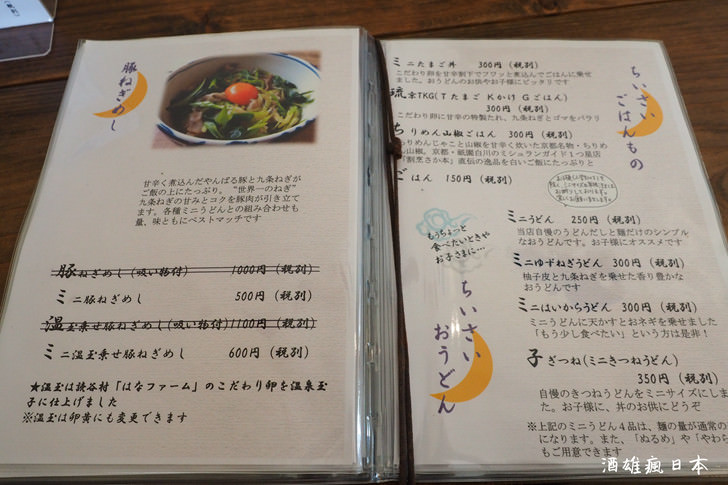 豚ねぎめし
甘辛く煮込んだやんばる豚と九条ねぎが
ご飯の上にたっぷり。“世界一のねぎ”
九条ねぎの甘みとコクを豚肉が引き立て
ます。各種ミニうどんとの組み合わせも
量、味ともにベストマッチです
豚ねぎめし(吸い物付) 1000円(税別)
ミニ豚ねぎめし 500円(税別)
温玉乗せ豚ねぎめし(吸い物付)1100円(税別)
ミニ温玉乗せ豚ねぎめし 600円(税別)
★温玉は読谷村「はなファーム」のこだわり卵を温泉玉
子に仕上げました
※温玉は卵黄にも変更できます
ちいさいごはんもの
ミニたまご丼 300円(税別)
こだわり卵を甘辛割下でフワッと煮込んでごはんに乗せ
ました。おうどんのお供やお子様にピッタリです
琉京TKG(Tたまご Kかけ Gごはん)
300円(税別)
こだわり卵に甘辛の特製たれ、九条ねぎとゴマをパラリ
ちりめん山椒ごはん 300円(税別)
ちりめんじゃこと山椒を甘辛く炊いた京都名物・ちりめ
ん山椒。京都・祇園白川のミシュランガイド1つ星店
「割烹さか本」直伝の逸品を白いご飯にたっぷりと
ごはん 150円(税別)
もうちょっと
食べたいときや
お子さまに…
ちいさいおうどん
ミニうどん 250円(税別)
当店自慢のうどんだしと麺だけのシンプル
なおうどんです。お子様にオススメです
ミニゆずねぎうどん 300円(税別)
柚子皮と九条ねぎを乗せた香り豊かな
おうどんです
ミニはいからうどん 300円(税別)
ミニうどんに天かすとおネギを乗せました
「もう少し食べたい」という方は是非!
子ぎつね(ミニきつねうどん)
350円(税別)
自慢のきつねうどんをミニサイズにしまし
た。お子様に、丼のお供にどうぞ
※上記のミニうどん4品は、麺の量が通常の
になります。また、「ぬるめ」や「やわら
もご用意できます
酒雄瘋日本